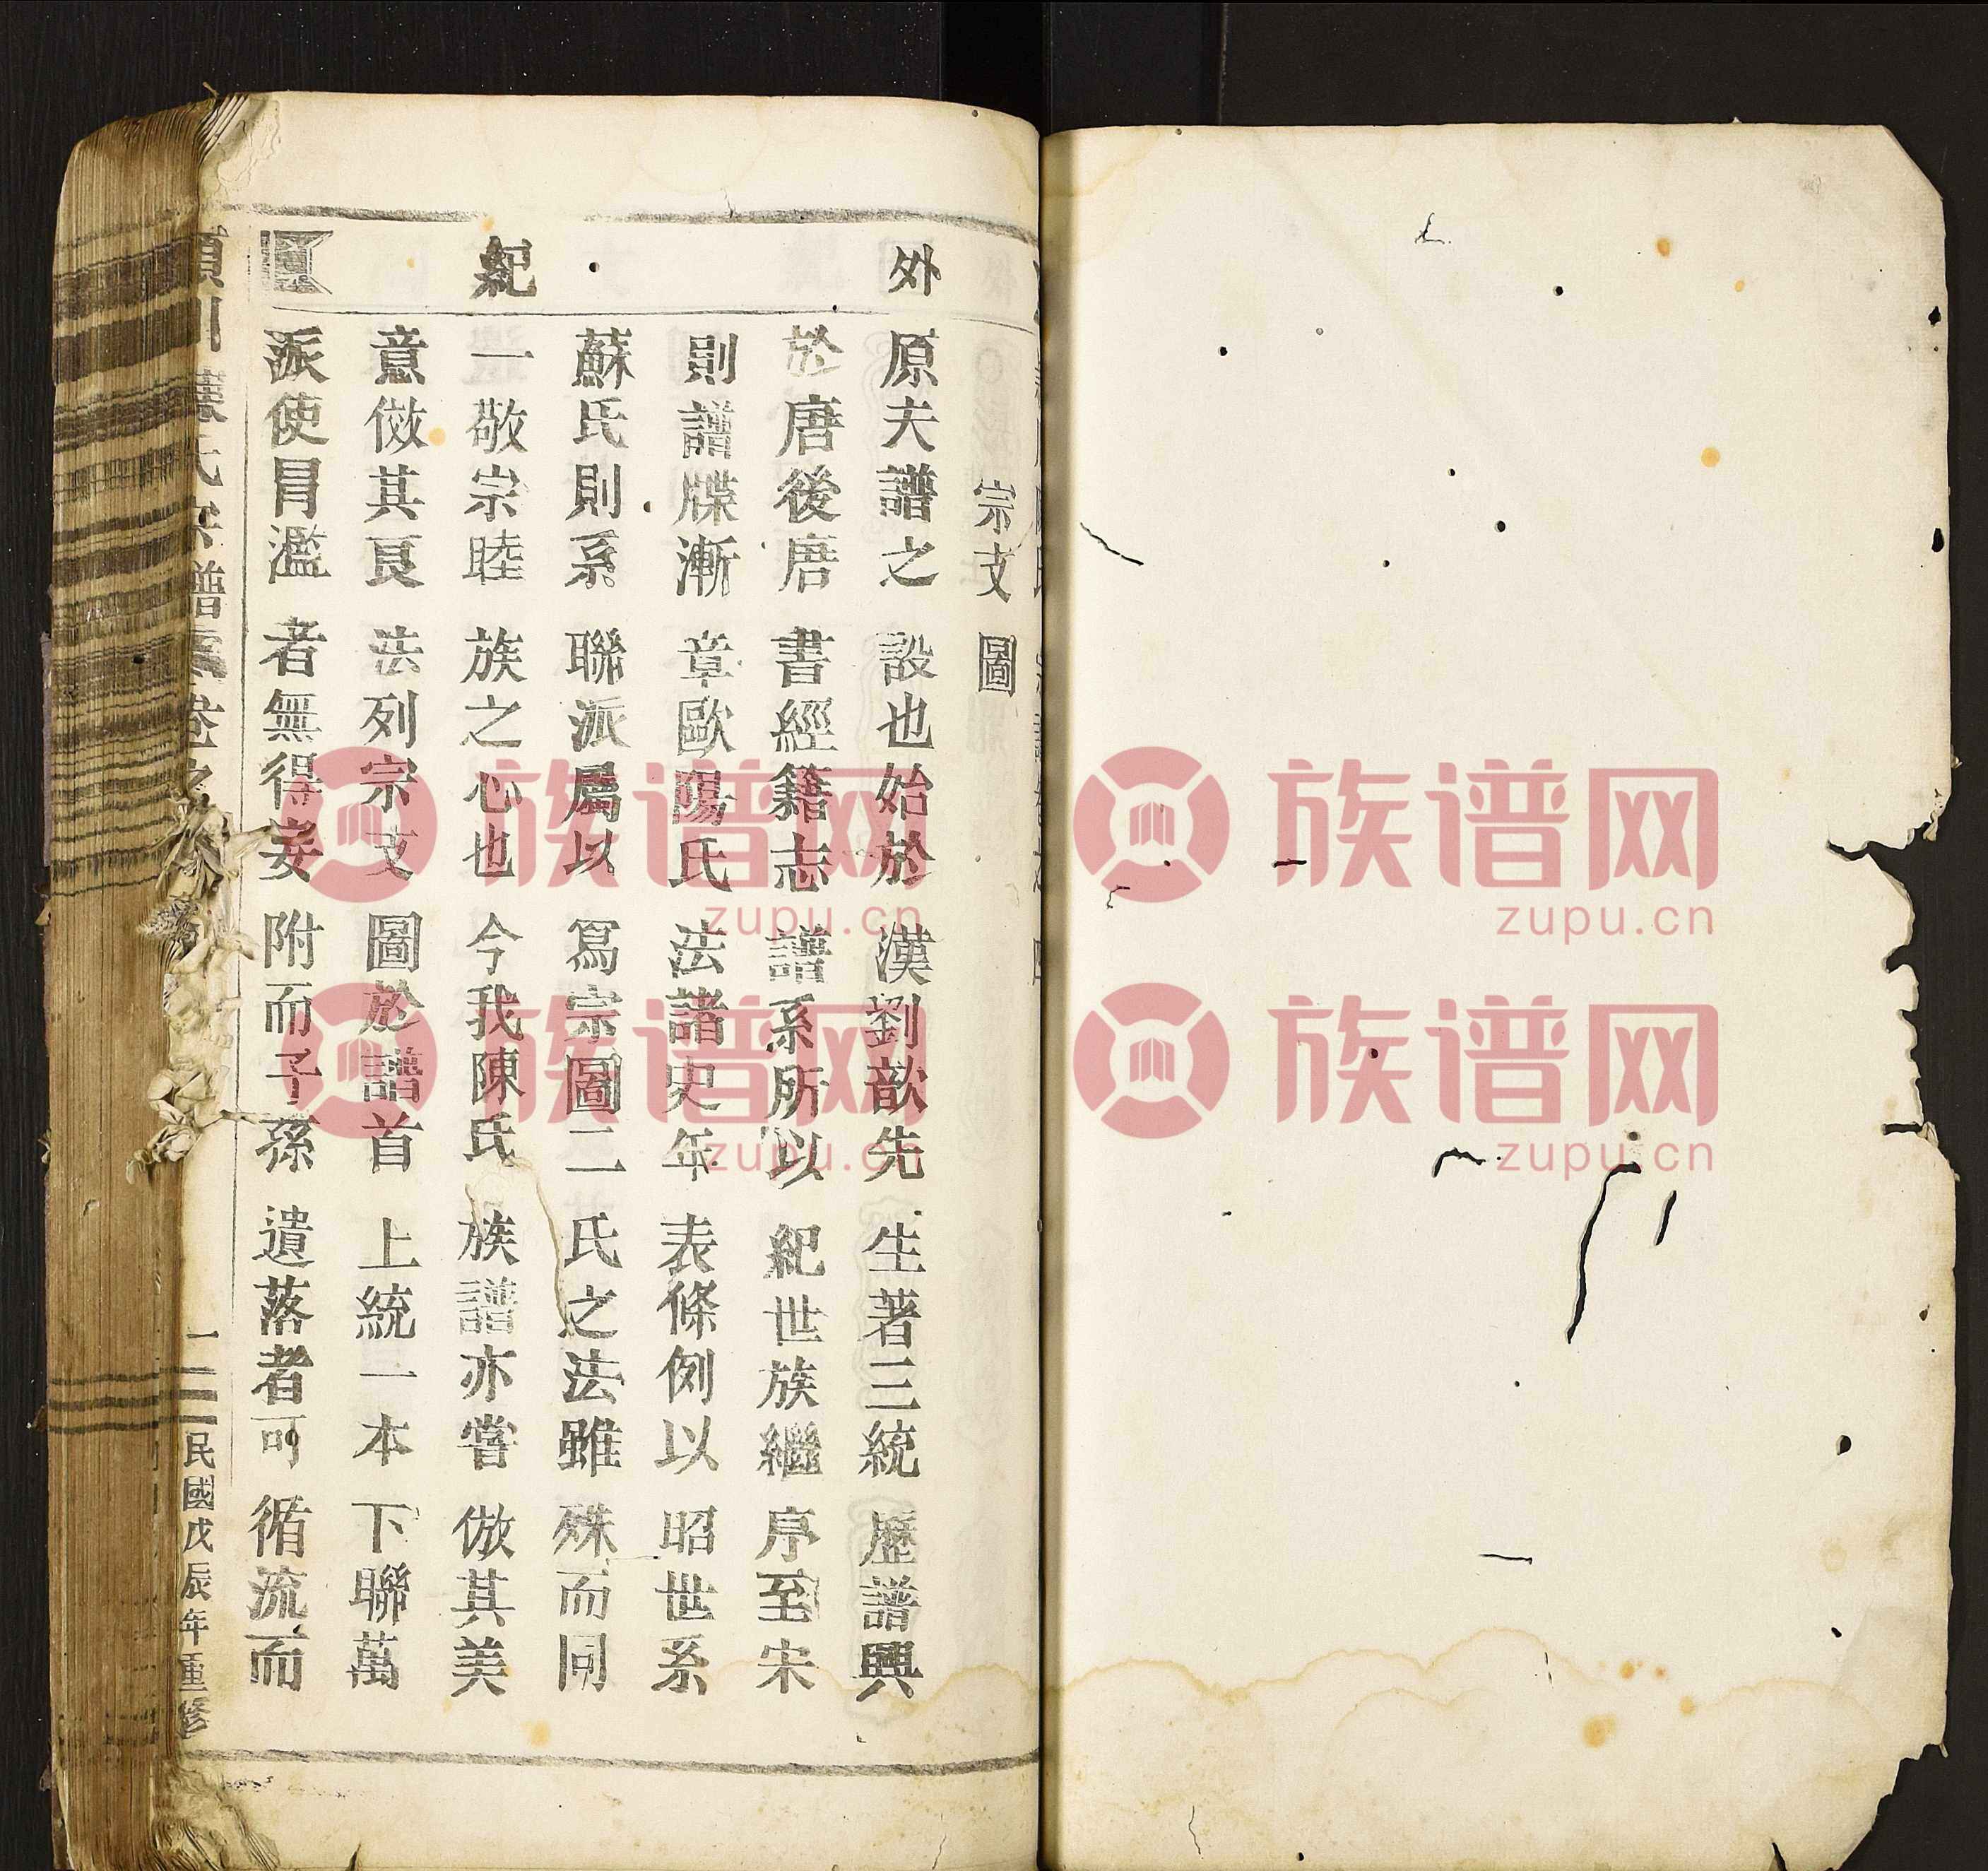 外紀圖
宗支圖
原夫譜之設也始於漢劉歆先生著三統歷譜興
於唐後唐書經籍志譜系所以紀世族繼序至宋
則譜牒漸章歐陽氏法諸史年表條例以昭世系
蘇氏則系聯派屬以爲宗圖二氏之法雖殊而同
一敬宗睦族之心也今我陳氏族譜亦嘗倣其美
意傚其良法列宗支圖於譜首上統一本下聯萬
派使冐濫者無得妄附而子孫遺落者可循流而
氏宗譜 卷之
民國戊辰年重修
族谱网
zupu.cn
族谱网
zupu.cn
族谱网
zupu.cn
族谱网
zupu.cn